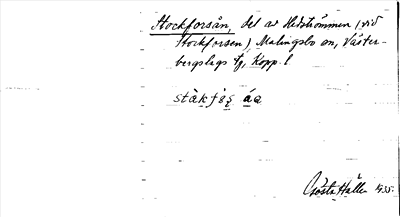 Stockforsån, del av Hedströmmen (vid
Stockforsen) Malingsbo sn, Väster-
bergslags tg, Kopp. l.
ståkfòş áa
Gösta Hallén 1935.